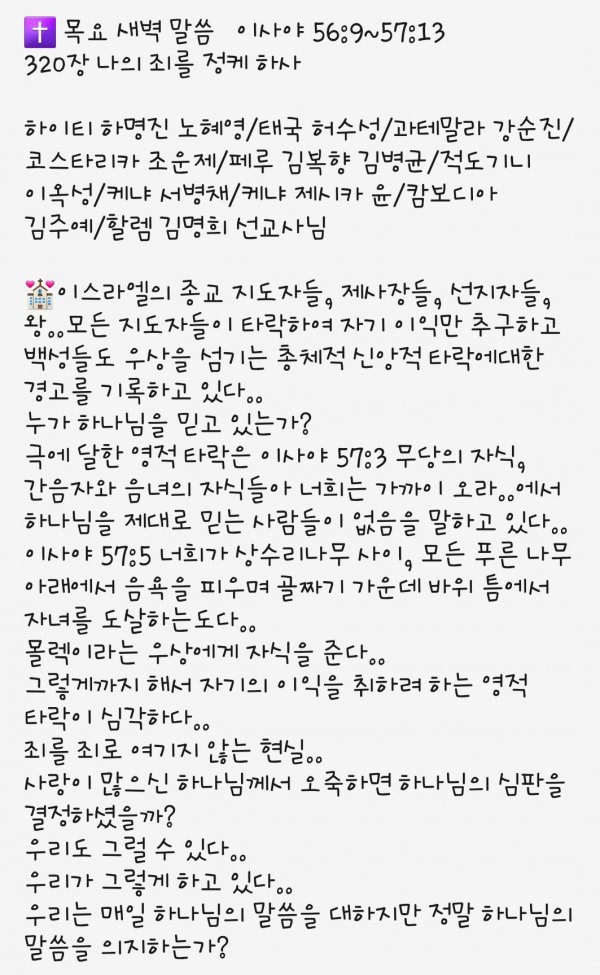 ✝️ 목요 새벽 말씀 이사야 56:9~57:13
320장 나의 죄를 정케 하사
하이티 하명진 노혜영/태국 허수성/과테말라 강순진/
코스타리카 조운제/페루 김복향 김병균/적도기니
이옥성/케냐 서병채/케냐 제시카 윤/캄보디아
김주예/할렘 김명희 선교사님
💒이스라엘의 종교 지도자들, 제사장들, 선지자들,
왕..모든 지도자들이 타락하여 자기 이익만 추구하고
백성들도 우상을 섬기는 총체적 신앙적 타락에대한
경고를 기록하고 있다..
누가 하나님을 믿고 있는가?
극에 달한 영적 타락은 이사야 57:3 무당의 자식,
간음자와 음녀의 자식들아 너희는 가까이 오라..에서
하나님을 제대로 믿는 사람들이 없음을 말하고 있다..
이사야 57:5 너희가 상수리나무 사이, 모든 푸른 나무
아래에서 음욕을 피우며 골짜기 가운데 바위 틈에서
자녀를 도살하는도다..
몰렉이라는 우상에게 자식을 준다..
그렇게까지 해서 자기의 이익을 취하려 하는 영적
타락이 심각하다..
죄를 죄로 여기지 않는 현실..
사랑이 많으신 하나님께서 오죽하면 하나님의 심판을
결정하셨을까?
우리도 그럴 수 있다..
우리가 그렇게 하고 있다..
우리는 매일 하나님의 말씀을 대하지만 정말 하나님의
말씀을 의지하는가?